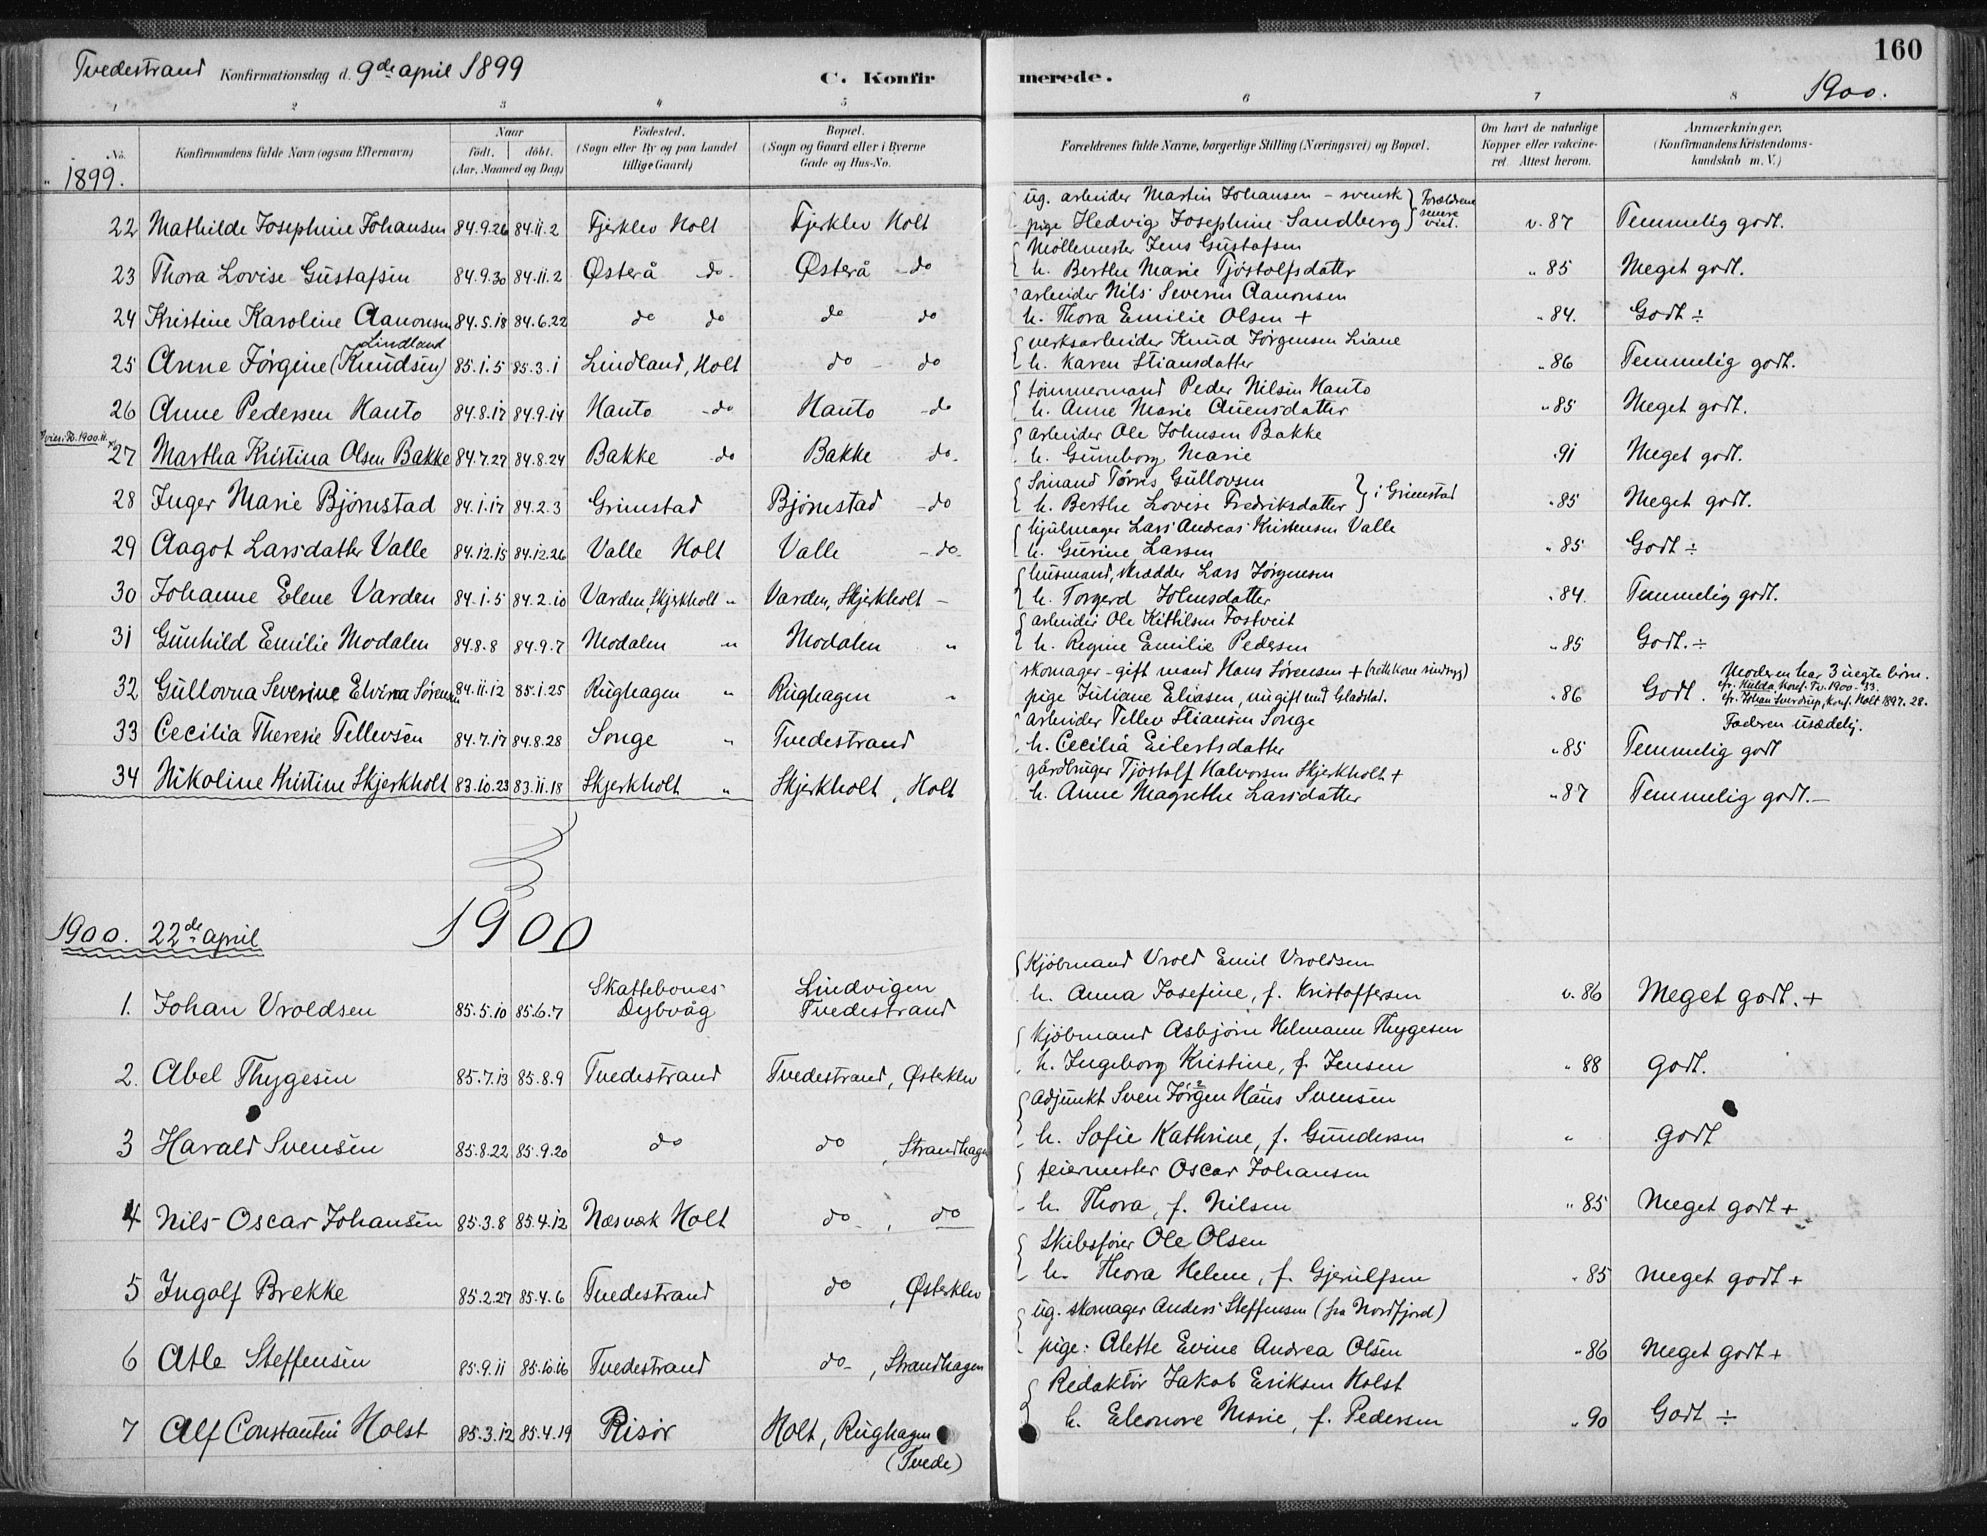 Tvedestrand Konfirmationsdag d. 9de april 1899 C. Konfirmerede. 160
1900.
1 2 3 4 5 6 7 8
No. Konfirmandens fulde Navn (ogsaa Efternavn) Naar født. døbt. (Aar, Maaned og Dag) Fødested. (Sogn eller By og paa Landet tillige Gaard) Bopæl. (Sogn og Gaard eller i Byerne Gade og Hus-No. Forældrenes fulde Navne, borgerlige Stilling (Næringsvei) og Bopæl. Om havt de naturlige Kopper eller vakcineret. Attest herom. Anmærkninger. (Konfirmandens Kristendomskundskab m. V.)
1899.
ug. arbeider Martin Johansen – svensk } Forældrene senere viet.
22 Mathilde Josephine Johansen 84.9.26 84.11.2 Fjerklev Holt Fjerklev Holt pige Hedvig Josephine Sandberg v. 87 Temmelig godt.
Møllemester Jens Gustafsen
23 Thora Lovise Gustafsen 84.9.30 84.11.2 Østerå do Østerå do h. Berthe Marie Tjøstolfsdatter " 85 Meget godt.
arbeider Nils Severin Aanonsen
24 Kristine Karoline Aanonsen 84.5.18 84.6.22 do do do do h. Thora Emilie Olsen + " 84. Godt ÷
Lindland
verksarbeider Knud Jørgensen Liane
25 Anne Jørgine (Knudsen) 85.1.5 85.3.1 Lindland, Holt do do h. Karen Stiansdatter " 86 Temmelig godt.
tømmermand Peder Nilsen Hanto
26 Anne Pedersen Hanto 84.8.17 84.9.14 Hanto do Hanto do h. Anne Marie Auensdatter " 85 Meget godt.
arbeider Ole Johnsen Bakke
27 Martha Kristina Olsen Bakke 84.7.27 84.8.24 Bakke do Bakke do. h. Gunborg Marie 91 Meget godt.
Sømand Tørris Gullovsen } i Grimstad
28 Inger Marie Bjørnstad 84.1.17 84.2.3 Grimstad Bjørnstad do h. Berthe Lovise Fredriksdatter " 85 Meget godt.
hjulmager Lars Andreas Kristensen Valle
29 Aagot Larsdatter Valle 84.12.15 84.12.26 Valle Holt Valle do h. Gurine Larsen " 85 Godt ÷
husmand, skrædder Lars Jørgensen
30 Johanne Elene Varden 84.1.5 84.2.10 Varden, Skjerkholt " Varden, Skjerkholt – h. Torgerd Johnsdatter " 84. Temmelig godt.
arbeider Ole Kittilsen Fostveit
31 Gunhild Emilie Modalen 84.8.8 84.9.7 Modalen " Modalen " h. Regine Emilie Pedersen " 85 Godt. ÷
skomager – gift mand Hans Sørensen +
Moderen har 3 uegte børn.
32 Gullovna Severine Elvina Sørensen 84.11.12 85.1.25 Rughagen " Rughagen " pige Juliane Eliasen, nu gift med Gladstad. " 86 Godt.
cfr. Hulda, Konf. Tv. 1900 – 33.
cfr. Johan Sverdrup, konf. Holt 1897. 28.
Faderen usædelig.
arbeider Tellev Stiansen Songe
33 Cecilia Therese Tellevsen 84.7.17 84.8.28 Songe " Tvedestrand h. Cecilia Eilertsdatter " 85 Temmelig godt
gårdbruger Tjøstolf Halvorsen Skjerkholt +
34 Nikoline Kristine Skjerkholt 83.10.23 83.11.18 Skjerkholt " Skjerkholt, Holt h. Anne Magrethe Larsdatter " 87 Temmelig godt. –
1900. 22de april 1900
Kjøbmand Vrold Emil Vroldsen
1. Johan Vroldsen 85.5.10 85.6.7 Skattebones Dybvåg Lindvigen Tvedestrand h. Anna Josefine, f. Kristoffersen v. 86 Meget godt. +
Kjøbmand Asbjørn Helmann Thygesen
2. Abel Thygesen 85.7.13 85.8.9 Tvedestrand Tvedestrand, Østerklev h. Ingeborg Kristine, f. Jensen " 88 godt.
Adjunkt Sven Jørgen Hans Svensen
3 Harald Svensen 85.8.22 85.9.20 do do, Strandhagen h. Sofie Kathrine, f. Gundersen " godt
feiermester Oscar Johansen
4 Nils Oscar Johansen 85.3.8 85.4.12 Næsvæk Holt do, do h. Thora, f. Nilsen " 85 Meget godt +
Skibsfører Ole Olsen
5 Ingolf Brekke 85.2.27 85.4.6 Tvedestrand do, Østerklev h. Thora Helene, f. Gjerulfsen " 85 meget godt +
ug. skomager Anders Steffensen (fra Nordfjord)
6 Atle Steffensen 85.9.11 85.10.16 Tvedestrand do, Strandhagen pige: Alette Evine Andrea Olsen " 86 Meget godt +
Redaktør Jakob Eriksen Holst
7 Alf Constantin Holst 85.3.12 85.4.19 Risør Holt, Rughagen (Tvede) h. Eleonore Marie, f. Pedersen " 90 Godt ÷